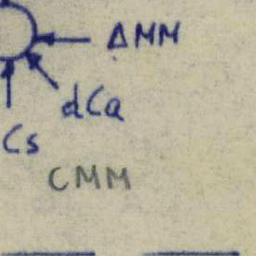 ΔMM
dCa
Cs
CMM